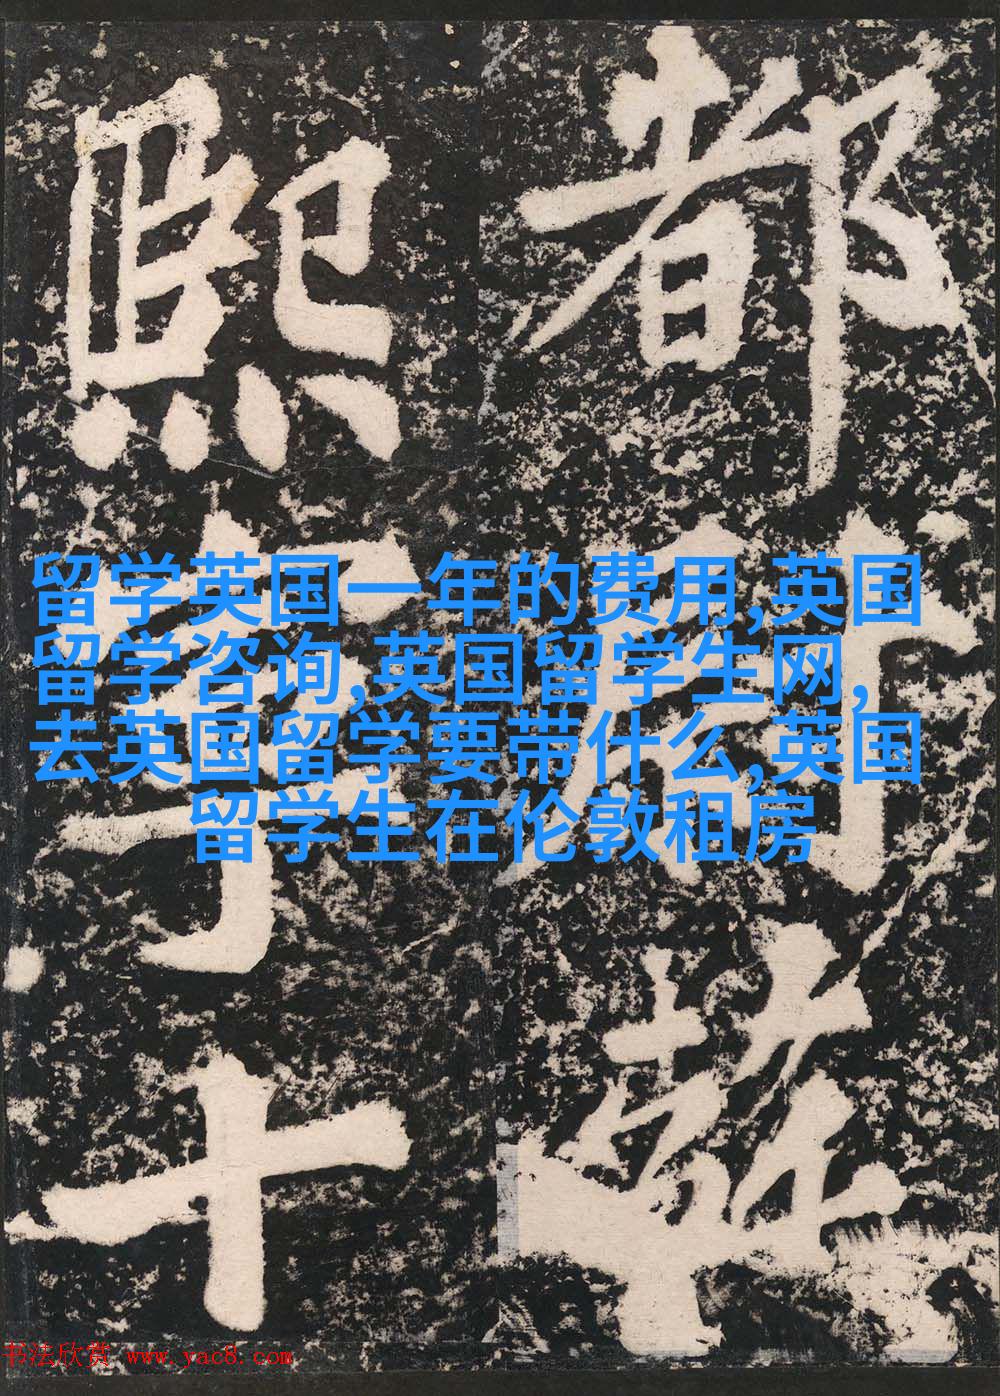 都
熙
留学英国一年的费用,英国
留学咨询,英国留学生网,
去英国留学要带什么,英国
留学生在伦敦租房
十
书法欣赏 www.yac8.com